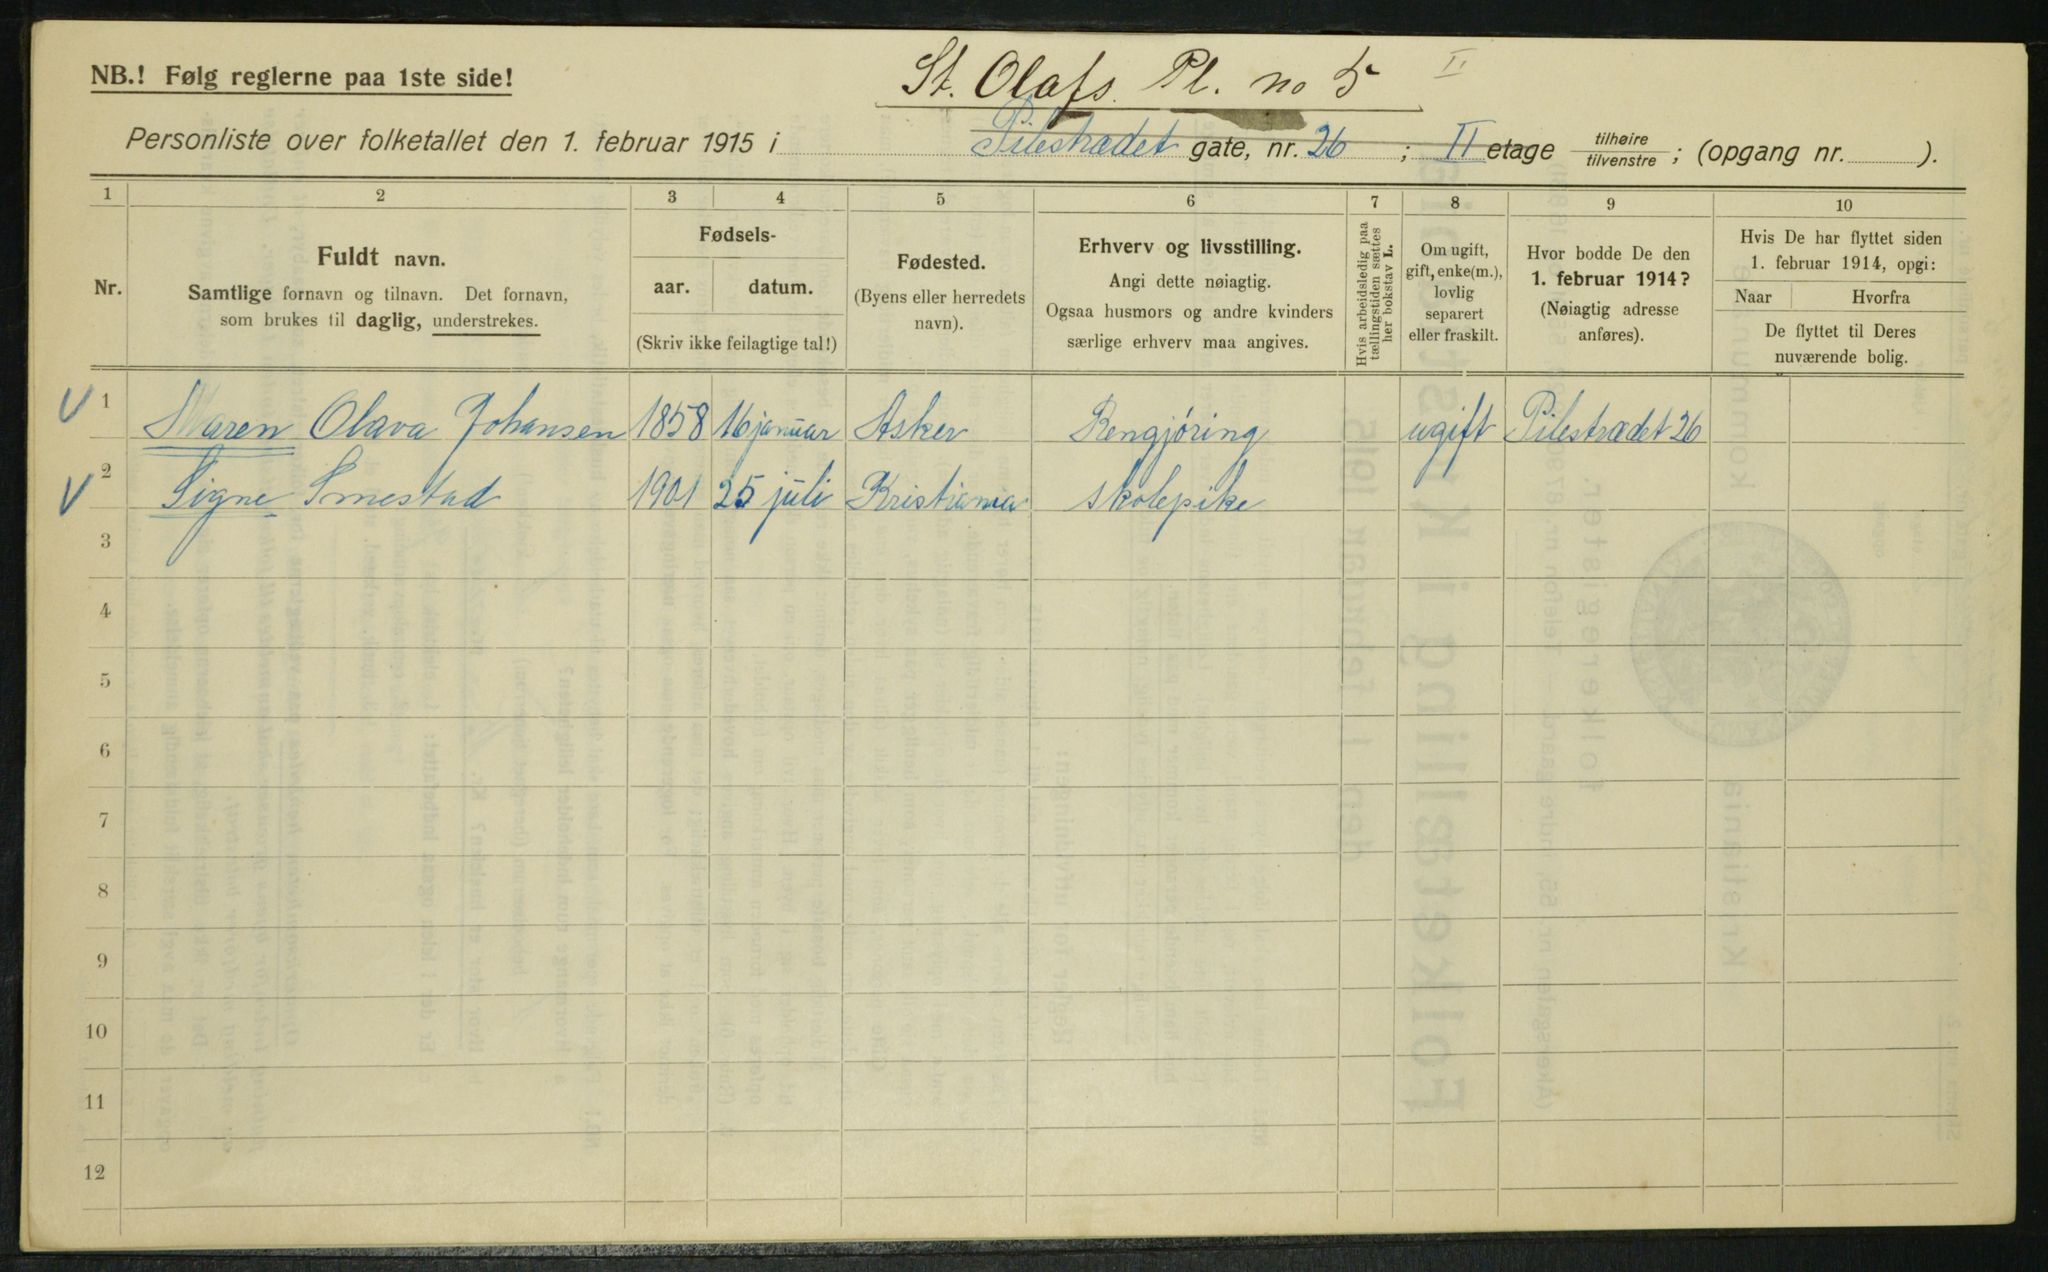 St. Olafs Pl. no 5 II
NB.! Følg reglerne paa 1ste side!
Personliste over folketallet den 1. februar 1915 i Pilestrædet gate, nr. 26 ; II etage tilhøire / tilvenstre ; (opgang nr. ).
1 2 3 4 5 6 7 8 9 10
Nr.
Fuldt navn.
Samtlige fornavn og tilnavn. Det fornavn,
som brukes til daglig, understrekes.
Fødsels-
aar. datum.
(Skriv ikke feilagtige tal!)
Fødested.
(Byens eller herredets
navn).
Erhverv og livsstilling.
Angi dette nøiagtig.
Ogsaa husmors og andre kvinders
særlige erhverv maa angives.
Hvis arbeidsledig paa
tællingstiden sættes
her bokstav L.
Om ugift,
gift, enke(m.),
lovlig
separert
eller fraskilt.
Hvor bodde De den
1. februar 1914?
(Nøiagtig adresse
anføres).
Hvis De har flyttet siden
1. februar 1914, opgi:
Naar Hvorfra
De flyttet til Deres
nuværende bolig.
1 Maren Olava Johansen 1858 16 januar Asker Rengjøring ugift Pilestrædet 26
2 Signe Smestad 1901 25 juli Kristiania skolepike
3
4
5
6
7
8
9
10
11
12